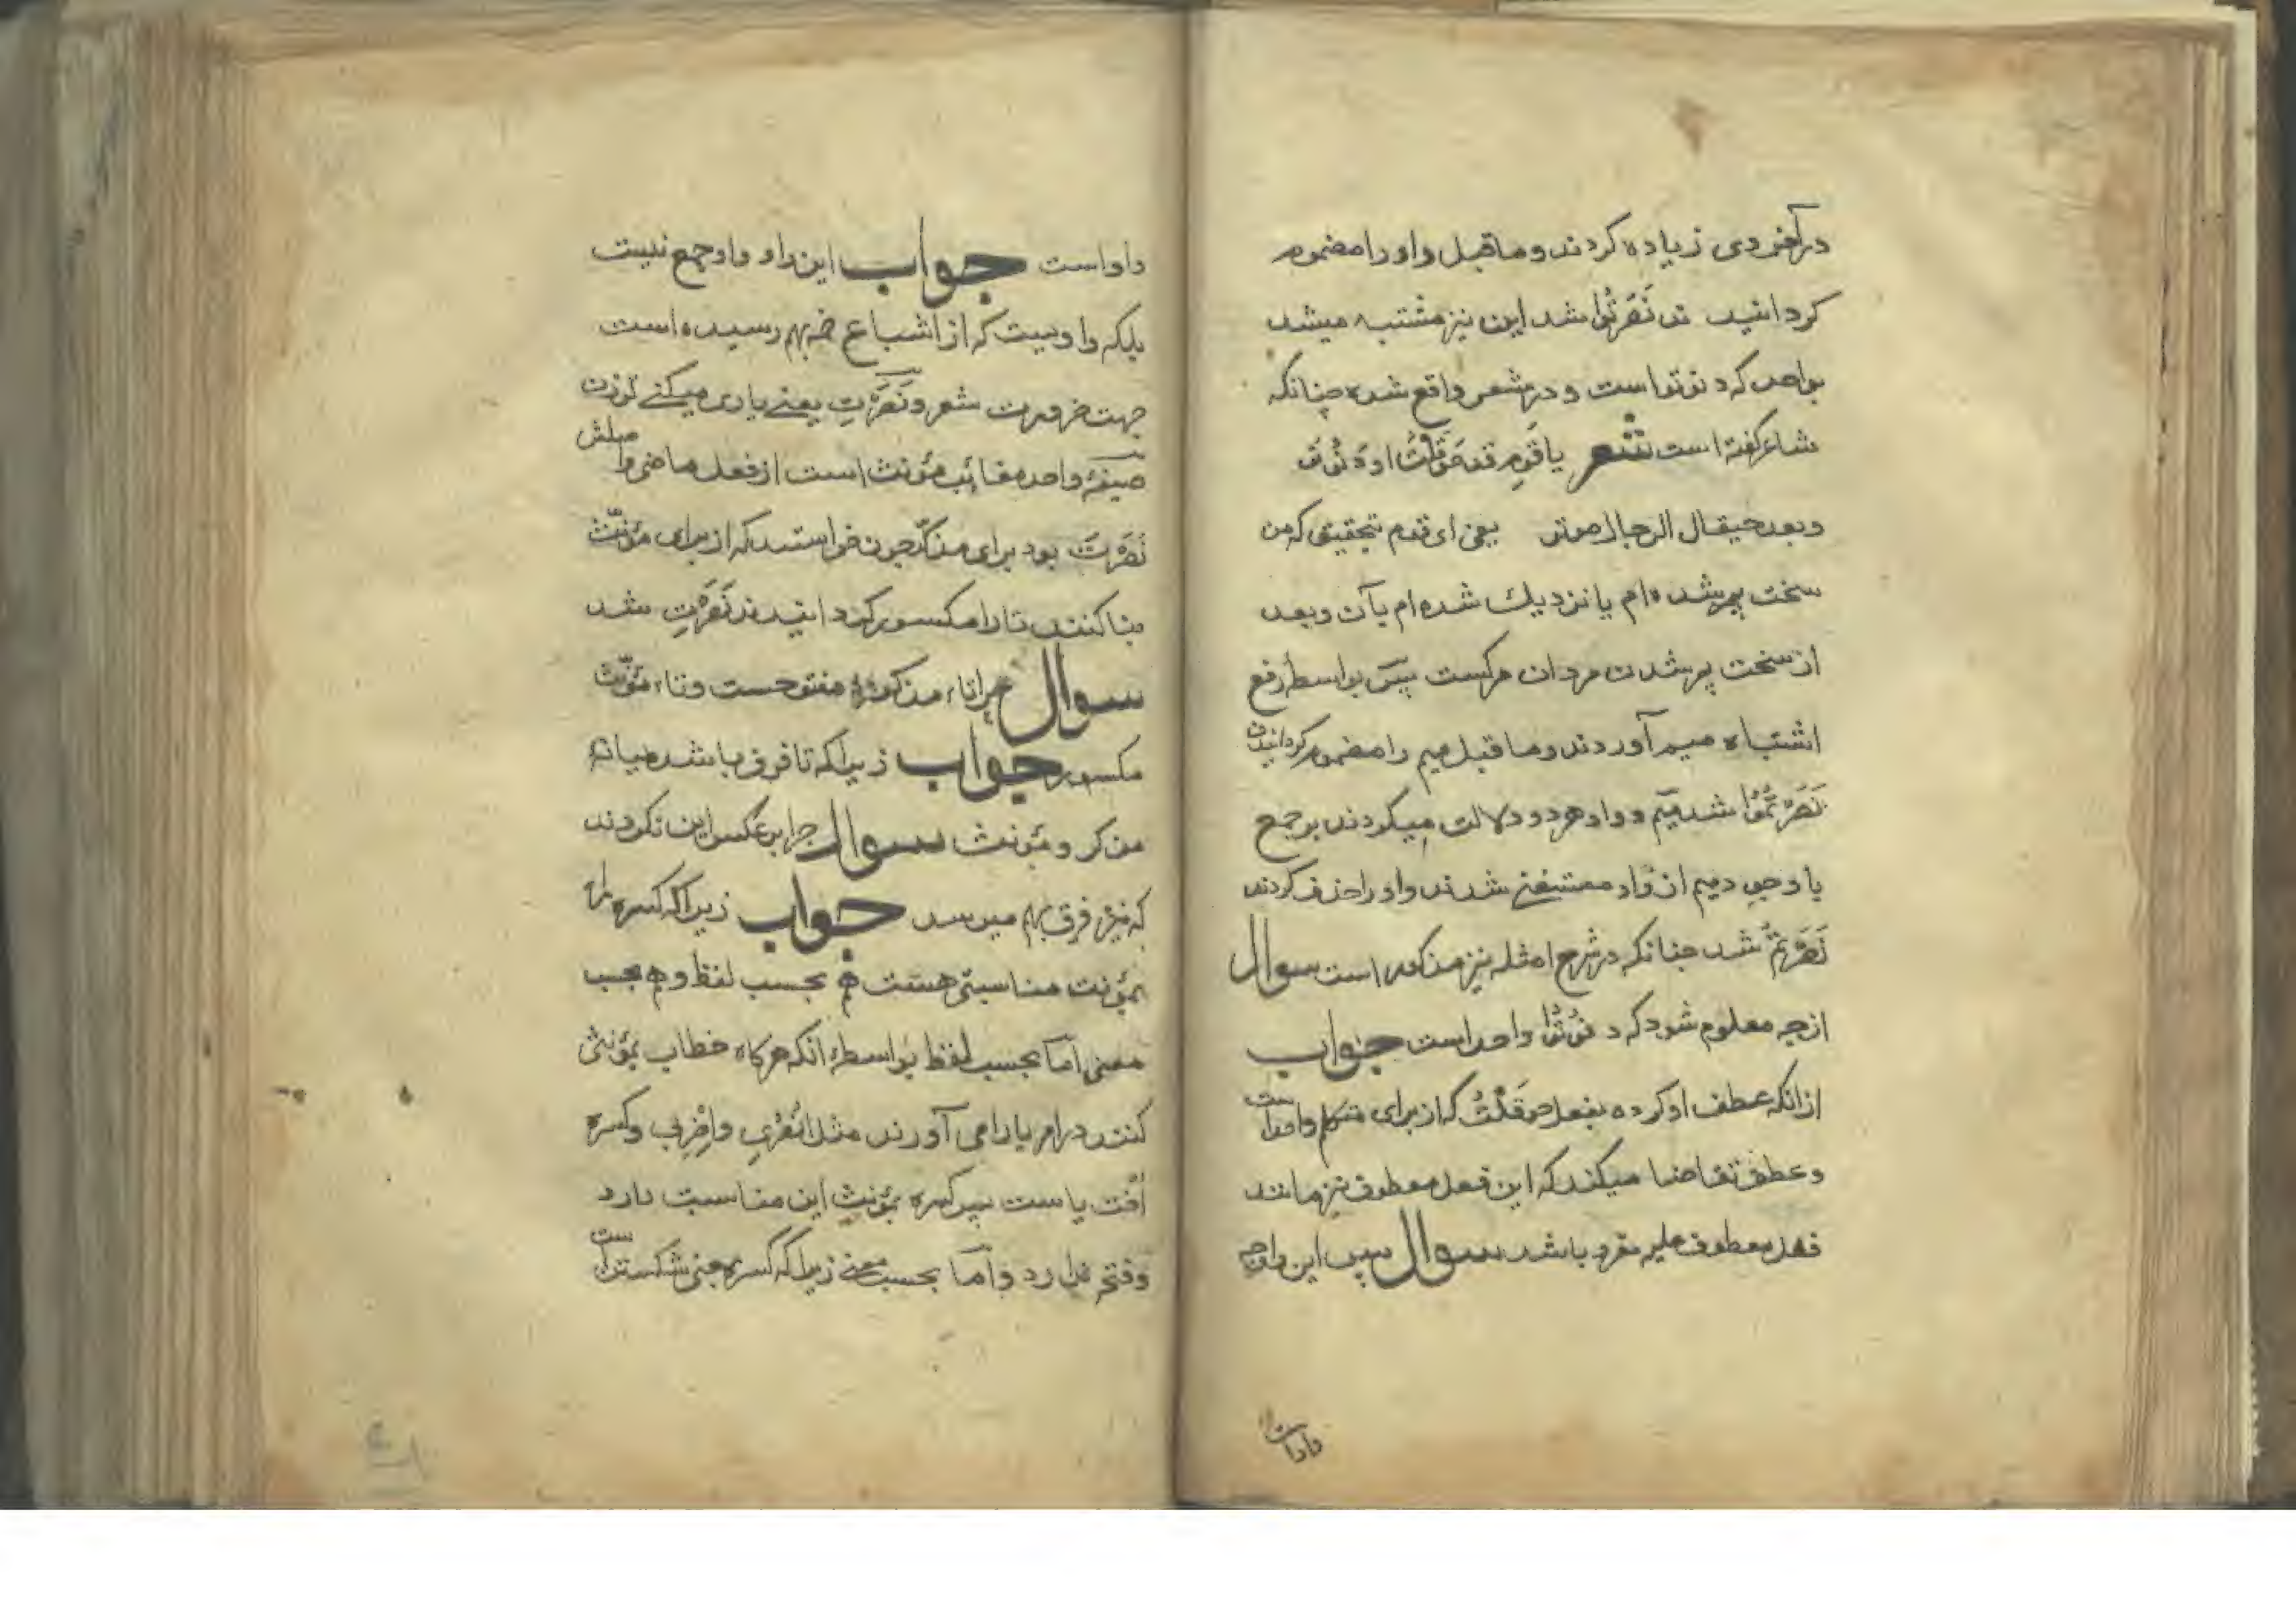 درآخر وی زیاده کردند و ماقبل واو را مضموم
کردانید ند نَصَرْتُوا شد این نیز مشتبه میشد
بواحد که دنوتوا است و در شعر واقع شده چنانکه
شاعر گفته است شعر یا قَومِ قد حَوقَلْتُ او دَنَوْتُ
وبعد حیقال الرجال موتر یعنی ای قوم بتحقیق که من
سخت پیر شده ام یا نزدیك شده ام بآن و بعد
از سخت پیر شدن مردان مرکست پس بواسطه رفع
اشتباه میم آوردند و ماقبل میم را مضموم کردانیدن
نَصَرْتُمُوا شد میم و واو هر دو دلالت میکردند بر جمع
با وجود میم از واو مستغنی شدند واو را حذف کردند
نَصَرْتُمْ شد چنانکه در شرح امثله نیز مذکور است سوال
از چه معلوم شود که دنوتُوا واحد است جواب
از انکه عطف او کرده بفعل حوقَلْتُ که از برای متکلم واحد است
و عطف تقاضا میکند که این فعل معطوف نیز مانند
فعل معطوف علیه مفرد باشد سوال پس این واو چه
واو است
واو است جواب این واو واو جمع نیست
بلکه واویست که از اشباع ضمه بهم رسیده است
جهت ضرورت شعر و نَصَرْتِ یعنی یاری میکنی تو زن
صیغهٔ واحده مغائب مؤنث است از فعل ماضی و اصلش
نَصَرْتَ بود برای مذکّر چون خواستند که از برای مؤنّث
بنا کنند تا را مکسور کردانیدند نَصَرْتِ شد
سوال چرا تاء مذکر مفتوحست و تاء مؤنّث
مکسور جواب زیرا که تا فرق باشد میانهٔ
مذکر و مؤنث سوال چرا بر عکس این نکردند
که نیز فرق بهم میرسد جواب زیرا که کسره را
بمؤنث مناسبتی هست هم بحسب لفظ و هم بحسب
معنی اما بحسب لفظ بواسطهٔ انکه هرکاه خطاب بمؤنثی
کنند در امر یا را می آورند مثل انْصُرِی و اِضْرِبِی و کسره
اُخْت یاست پس کسره بمؤنث این مناسبت دارد
و فتحه ندارد و اما بحسب معنی زیرا که کسره بمعنی شکستن است